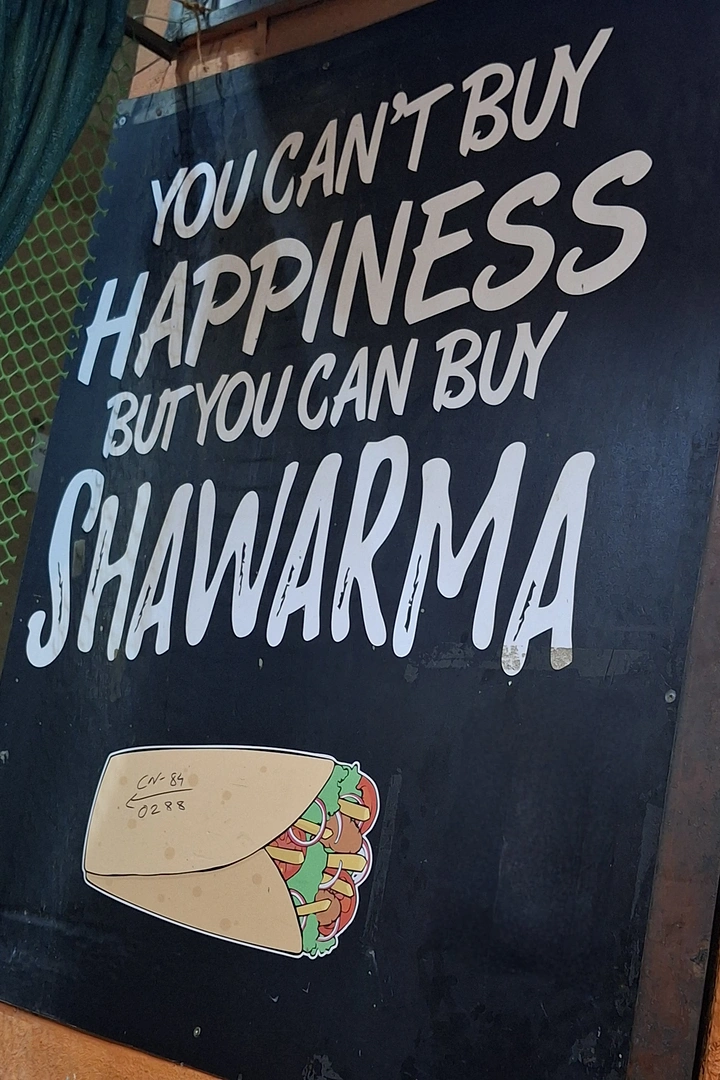 YOU CAN'T BUY
HAPPINESS
BUT YOU CAN BUY
SHAWARMA
CN-84
0288